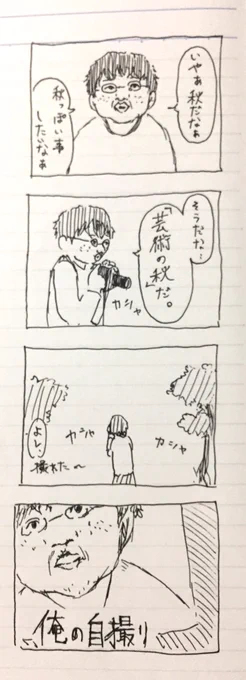 いやぁ秋だなぁ
秋っぽい事
したいなぁ
そうだな…
「芸術の秋」だ。
カシャ
カシャ
カシャ
よし、
撮れた〜
俺の自撮り